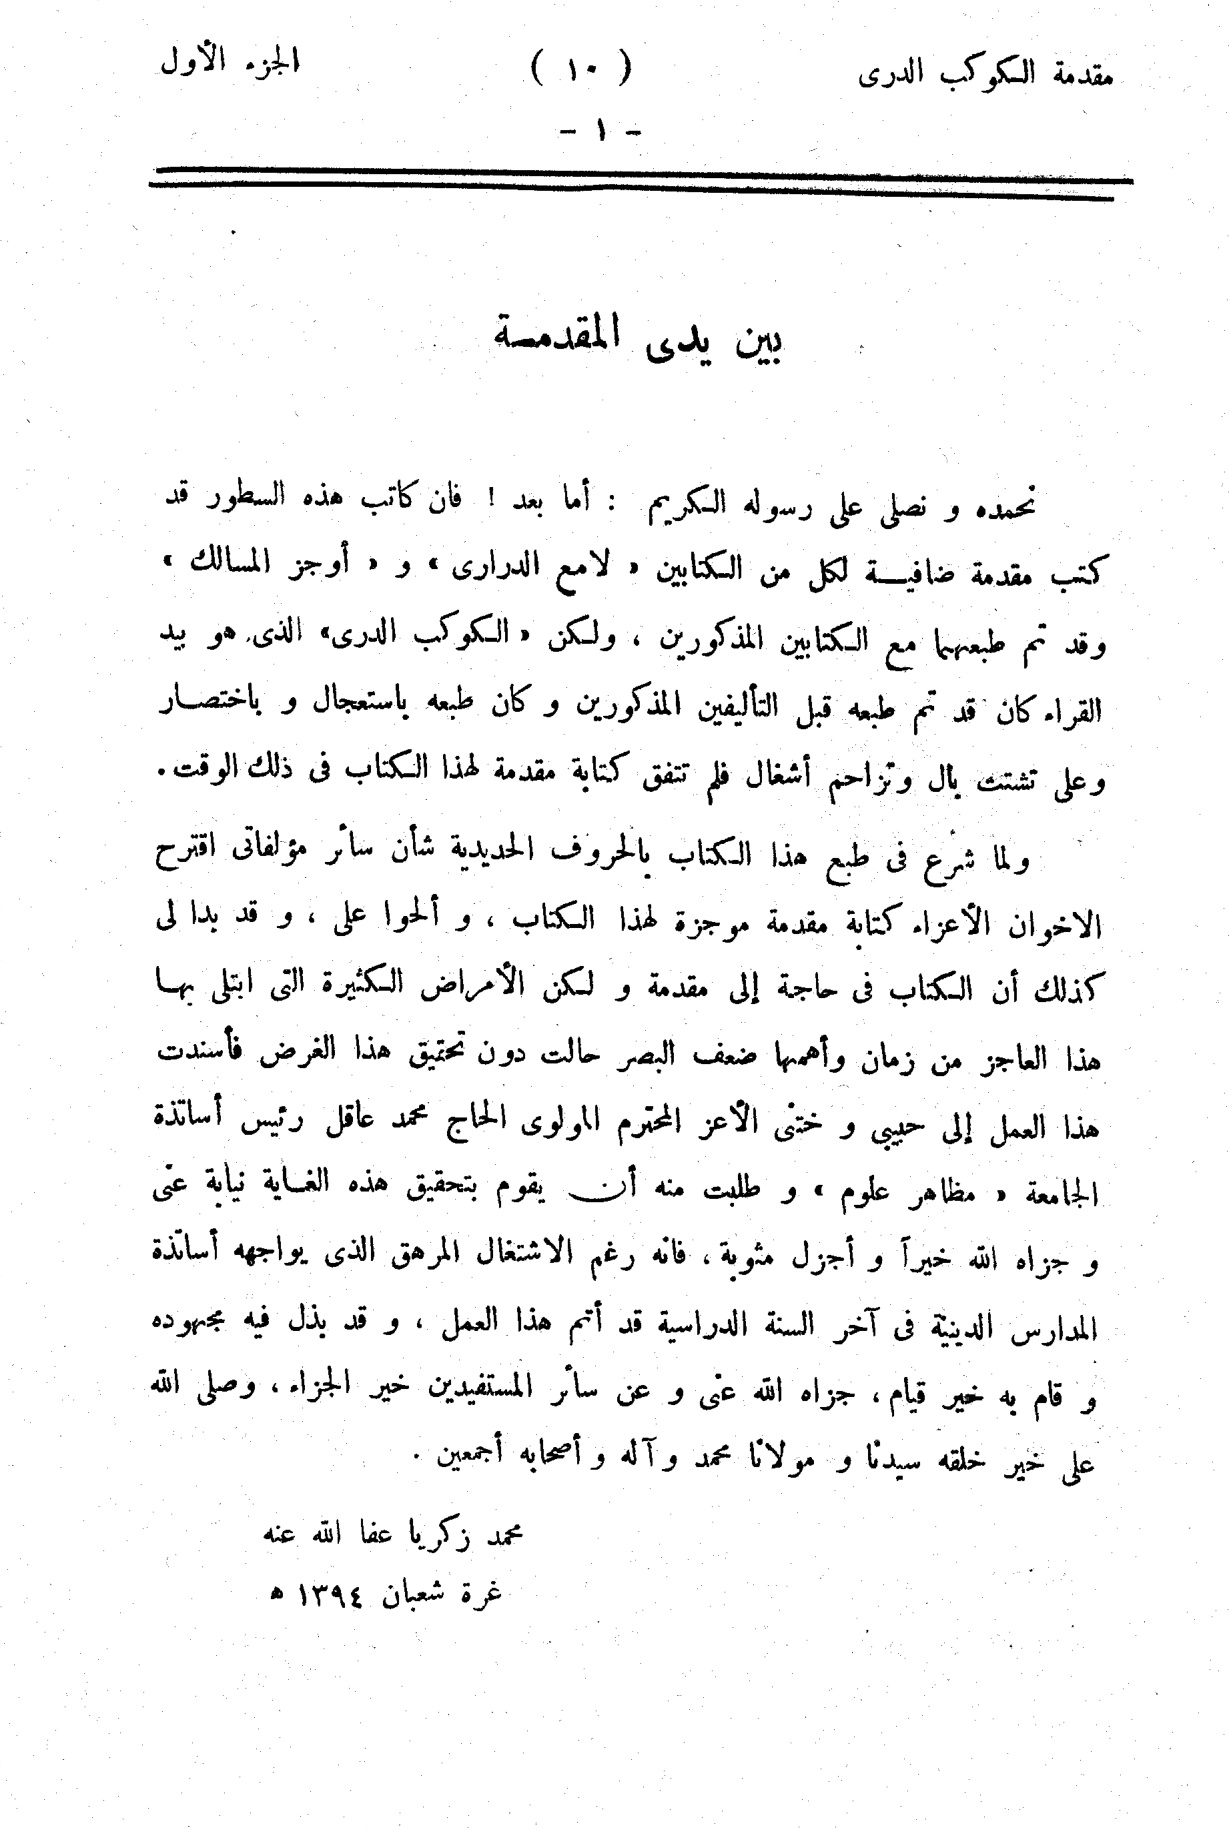 مقدمة الكوكب الدرى ( ١٠ ) الجزء الأول
- ١ -
بين يدى المقدمة
نحمده و نصلى على رسوله الكريم : أما بعد ! فان كاتب هذه السطور قد
كتب مقدمة ضافية لكل من الكتابين « لامع الدرارى » و « أوجز المسالك »
وقد تم طبعهما مع الكتابين المذكورين ، ولكن «الكوكب الدرى» الذى هو بيد
القراء كان قد تم طبعه قبل التأليفين المذكورين و كان طبعه باستعجال و باختصار
وعلى تشتت بال وتزاحم أشغال فلم تتفق كتابة مقدمة لهذا الكتاب فى ذلك الوقت .
ولما شرع فى طبع هذا الكتاب بالحروف الحديدية شأن سائر مؤلفاتى اقترح
الاخوان الأعزاء كتابة مقدمة موجزة لهذا الكتاب ، و ألحوا على ، و قد بدا لى
كذلك أن الكتاب فى حاجة إلى مقدمة و لكن الأمراض الكثيرة التى ابتلى بها
هذا العاجز من زمان وأهمها ضعف البصر حالت دون تحقيق هذا الغرض فأسندت
هذا العمل إلى حبيبي و ختنى الأعز المحترم المولوى الحاج محمد عاقل رئيس أساتذة
الجامعة « مظاهر علوم » و طلبت منه أن يقوم بتحقيق هذه الغاية نيابة عنى
و جزاه الله خيراً و أجزل مثوبة ، فانه رغم الاشتغال المرهق الذى يواجهه أساتذة
المدارس الدينية فى آخر السنة الدراسية قد أتم هذا العمل ، و قد بذل فيه مجهوده
و قام به خير قيام ، جزاه الله عنى و عن سائر المستفيدين خير الجزاء ، وصلى الله
على خير خلقه سيدنا و مولانا محمد و آله و أصحابه أجمعين .
محمد زكريا عفا الله عنه
غرة شعبان ١٣٩٤ ه